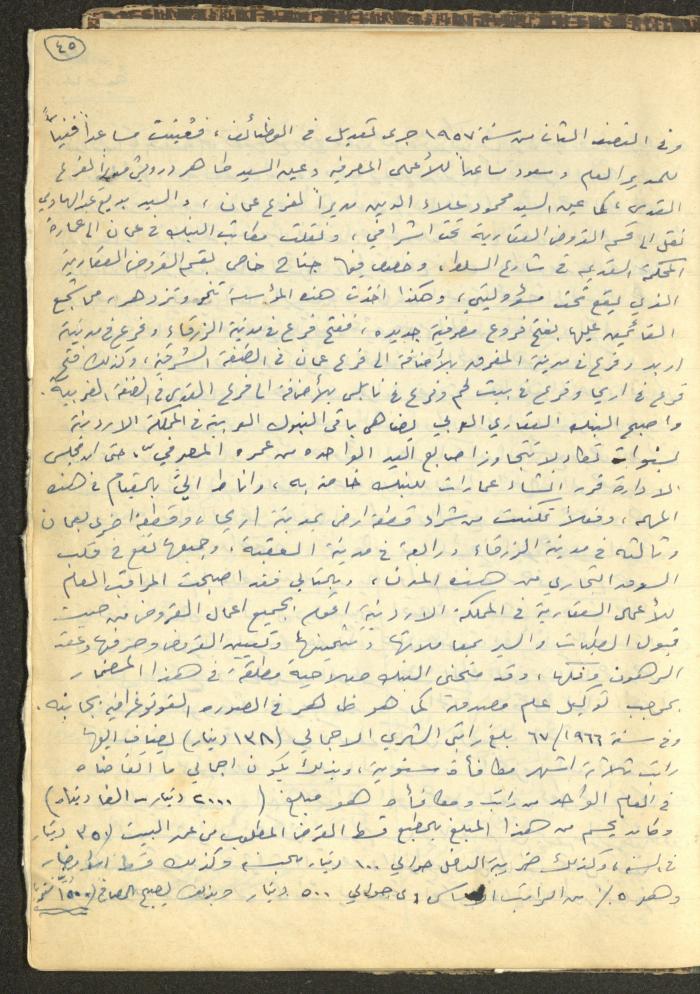 ٤٥
وفي النصف الثاني من سنة ١٩٥٧ جرى تعديل في الوظائف، فعُينت مساعداً فنياً
للمدير العام وسعود مساعداً للأعمال المصرفية وعين السيد طاهر درويش مديراً لفرع
القدس، كما عين السيد محمود علاء الدين مديراً لفرع عمان، والسيد بديع عبد الهادي
نقل الى قسم القروض العقارية تحت اشرافي، ونقلت مكاتب البنك في عمان الى عمارة
المحكمة القديمة في شارع السلط، وخصص فيها جناح خاص بقسم القروض العقارية
الذي يقع تحت مسؤوليتي، وهكذا اخذت هذه المؤسسة تنمو وتزدهر، مما شجع
القائمين عليها بفتح فروع مصرفية جديدة، ففتح فرع في مدينة الزرقاء وفرع في مدينة
اربد وفرع في مدينة المفرق بالاضافة الى فرع عمان في الضفة الشرقية، وكذلك فتح
فرع في اريحا وفرع في بيت لحم وفرع في نابلس بالاضافة الى فرع القدس في الضفة الغربية.
واصبح البنك العقاري العربي يضاهي باقي البنوك العربية في المملكة الاردنية
لسنوات تكاد لا تتجاوز اصابع اليد الواحدة من عمره المصرفي، حتى ان مجلس
الادارة قرر انشاء عمارات للبنك خاصة به، واناط اليّ بالقيام في هذه
المهمة، وفعلاً تمكنت من شراء قطعة ارض بمدينة اريحا، وقطعة اخرى بعمان
وثالثة في مدينة الزرقاء ورابعة في مدينة العقبة. وجميعها تقع في قلب
السوق التجاري من هذه المدن، وبالتالي فقد اصبحت المراقب العام
للأعمال العقارية في المملكة الاردنية اقوم بجميع اعمال القروض من حيث
قبول الطلبات والسير بمعاملاتها وتثمينها وتعيين القروض وصرفها وعقد
الرهون وفكها، وقد منحني البنك صلاحية مطلقة في هذا المضمار
بموجب توكيل عام مصدق كما هو ظاهر في الصورة الفوتوغرافية بجانبه.
وفي سنة ١٩٦٦/٦٧ بلغ راتبي الشهري الاجمالي (١٣٨ دينار) يضاف اليها
راتب ثلاثة اشهر مكافأة سنوية، وبذلك يكون اجمالي ما اتقاضاه
في العام الواحد من راتب ومكافأة هو مبلغ (٢٠٠٠ دينار - الفا دينار)
وكان يحسم من هذا المبلغ بالطبع قسط القرض المطلوب من عن البيت (٣٥٠ دينار
في السنة، وكذلك ضريبة الدخل حوالي ١٠٠ دينار بالسنة وكذلك قسط
وهو ٥٪ من الراتب الاساسي اى حوالي ٥٠٠ دينار وبذلك يصبح الصافي (١٥٠٠